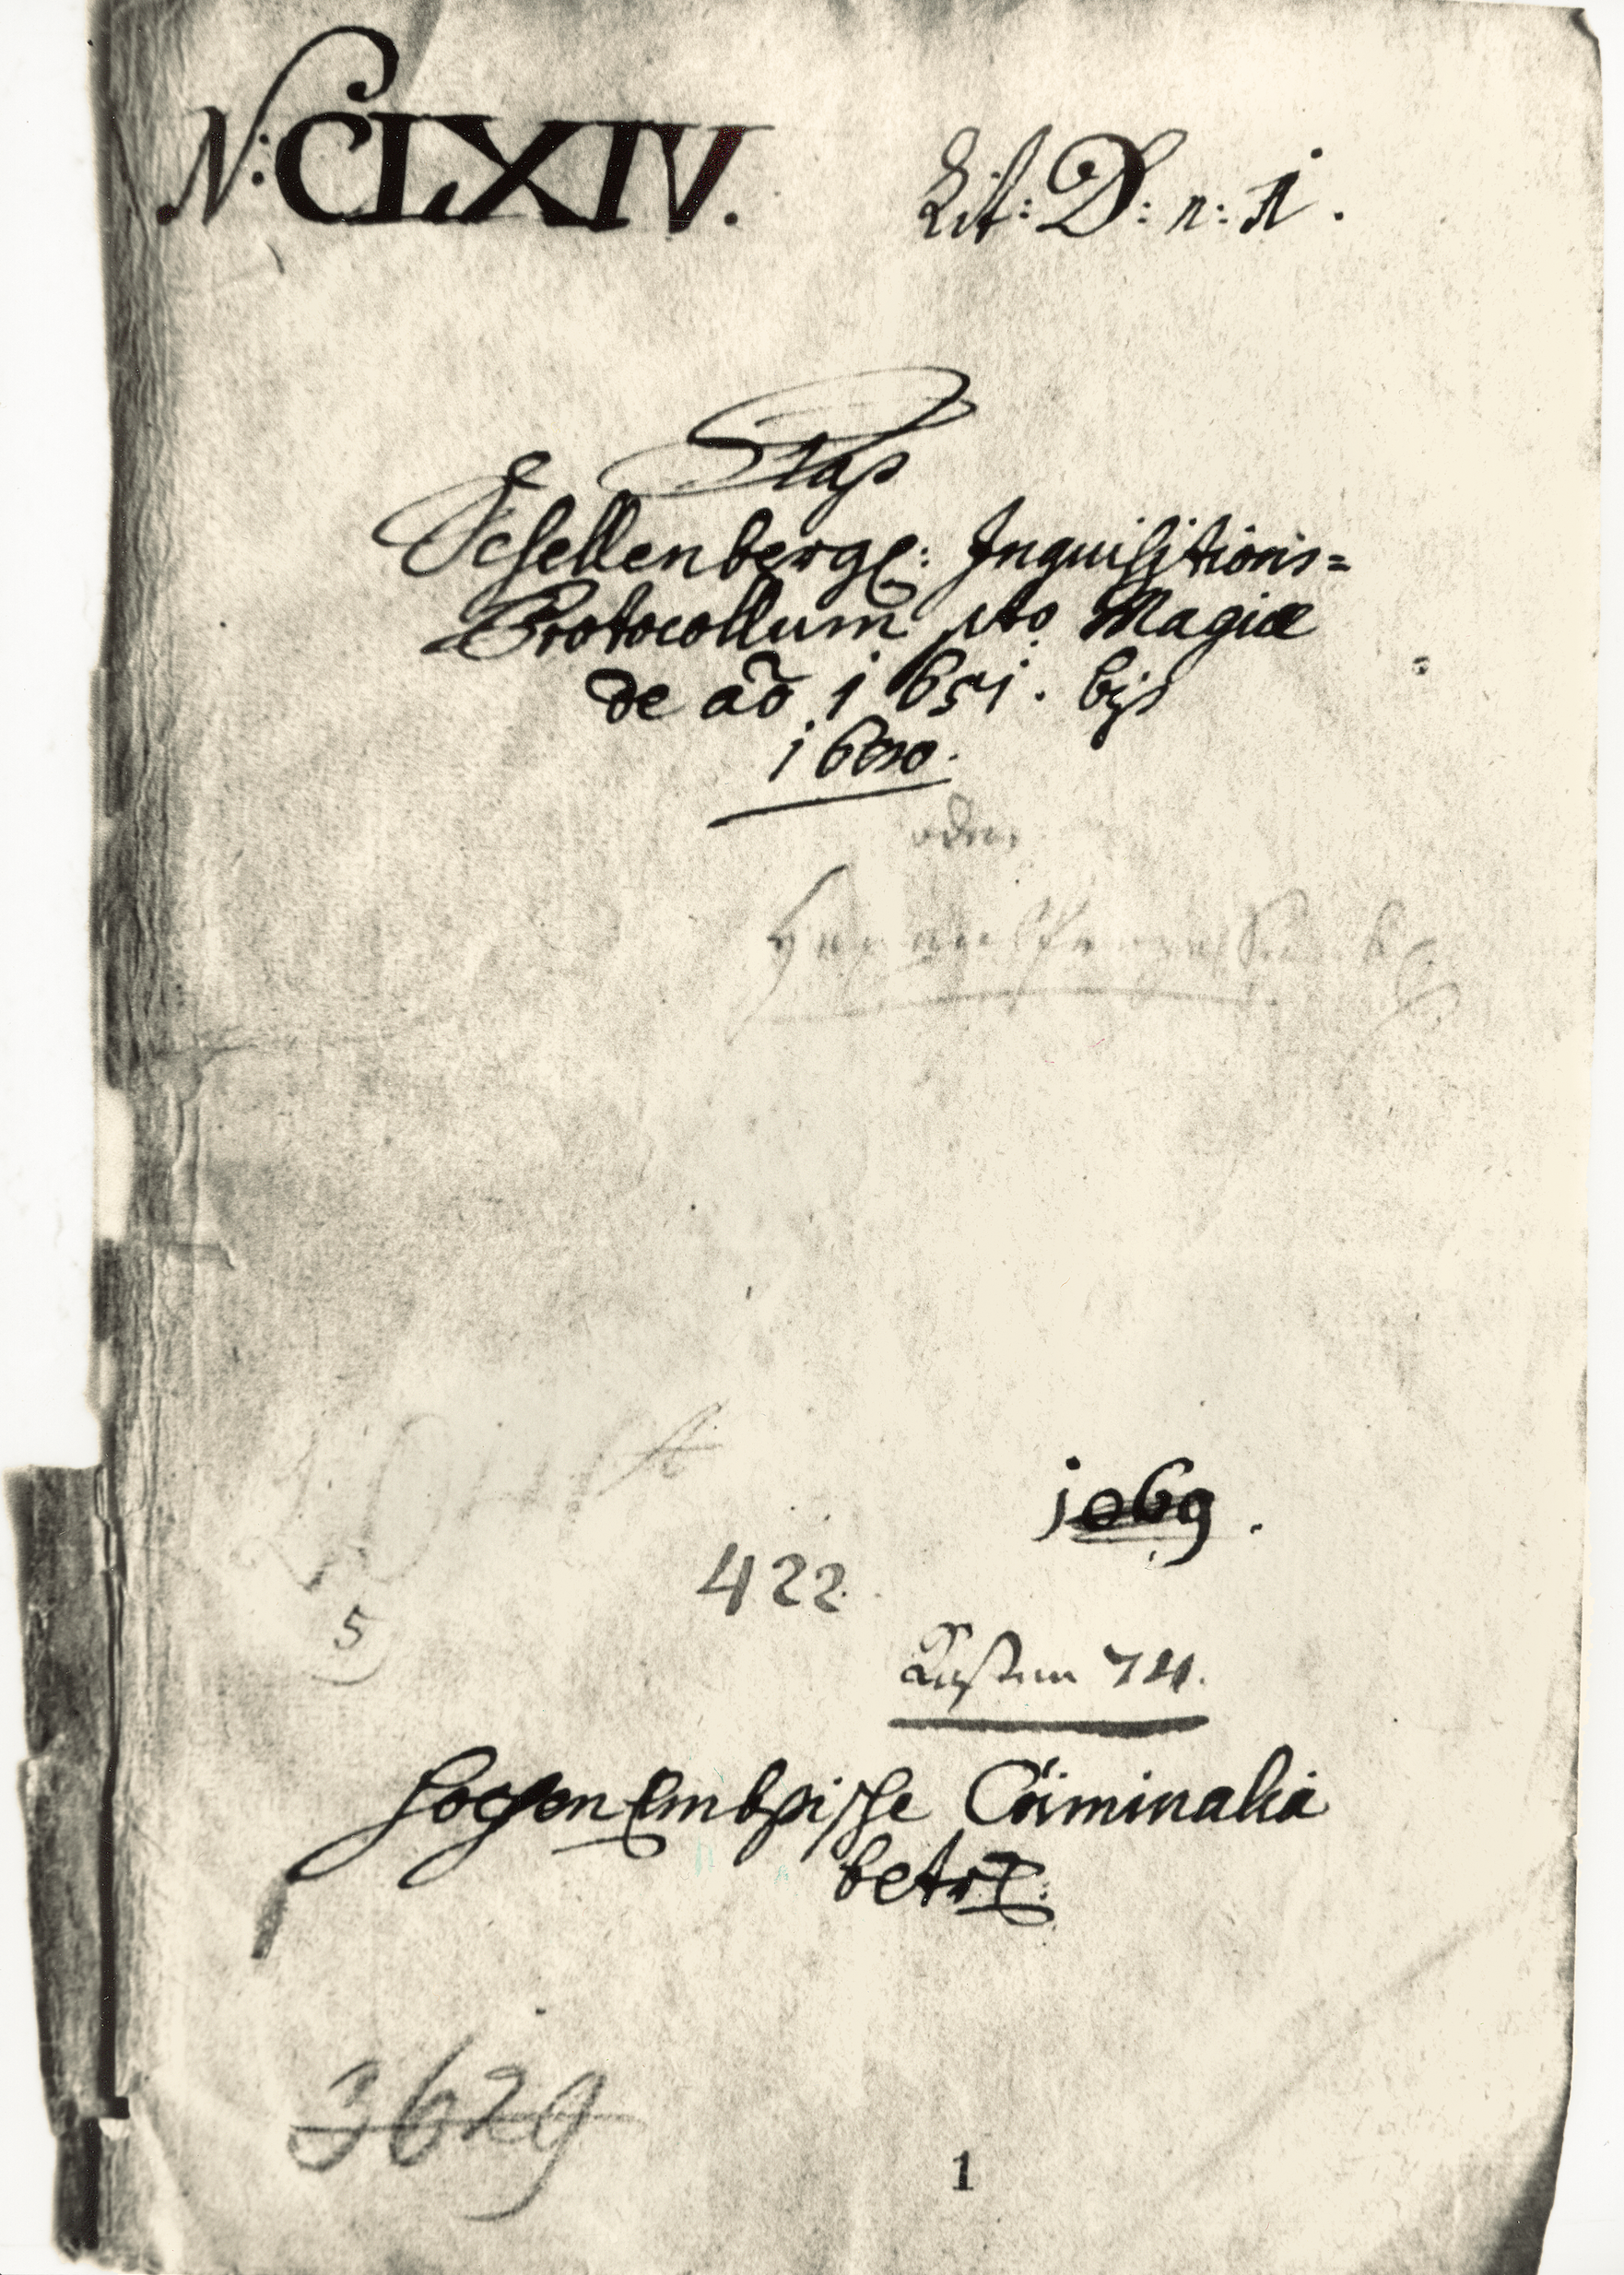 N: CLXIV. Lit: D: n: 1.
Das
Schellenberg: Inquisitions=
Protocollum pto Magiæ
de aõ 1651. bis
1680.
oder
1069.
422
5
Kasten 74.
HochenEmbsische Criminalia
betr:
3629
1